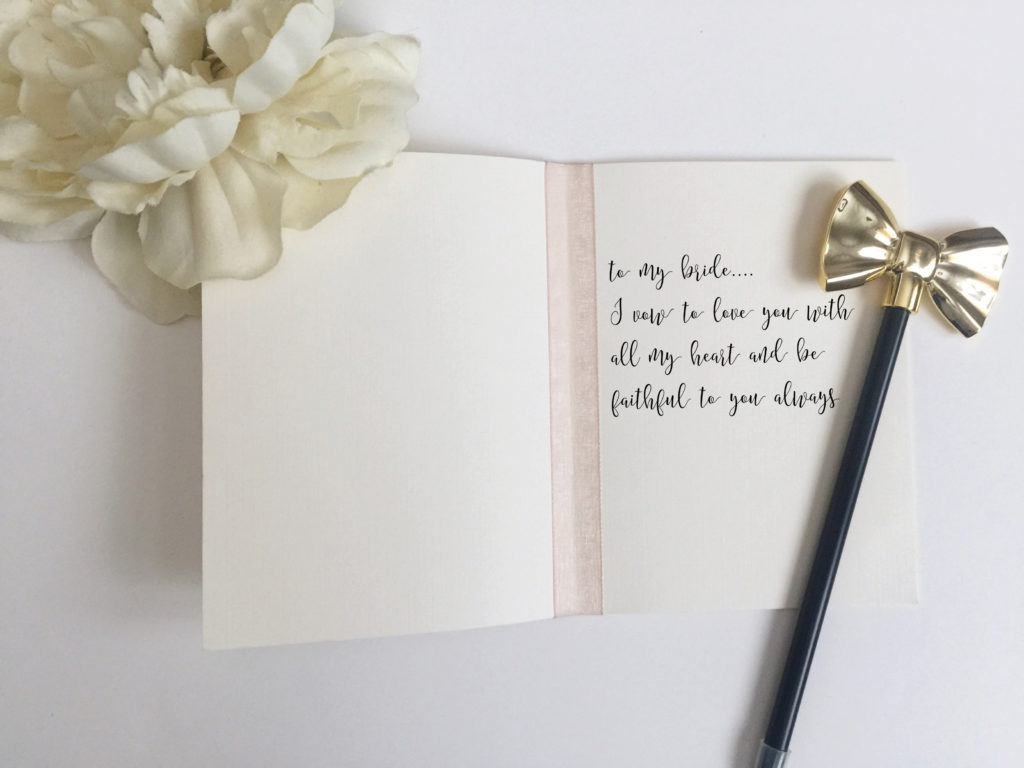 to my bride....
I vow to love you with
all my heart and be
faithful to you always